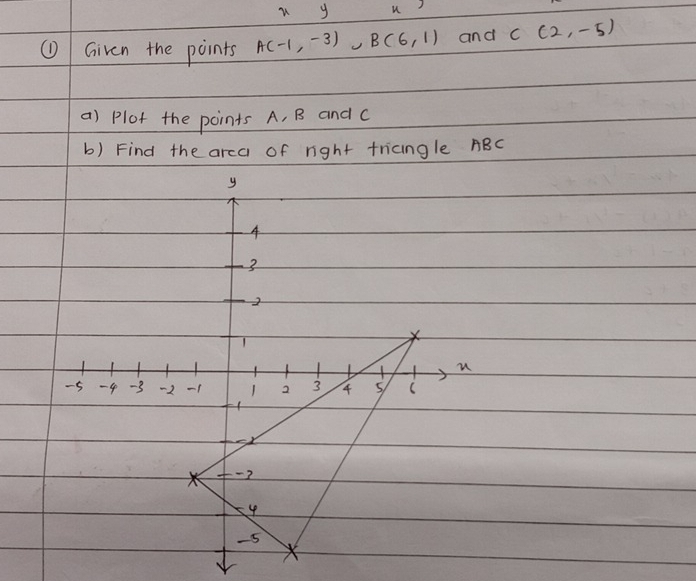 x y x
① Given the points A(-1, -3), B(6, 1) and C (2, -5)
a) Plot the points A, B and C
b) Find the area of right triangle ABC
y
4
3
2
1
x
-5 -4 -3 -2 -1 1 2 3 4 5 6
-1
-2
-3
-4
-5